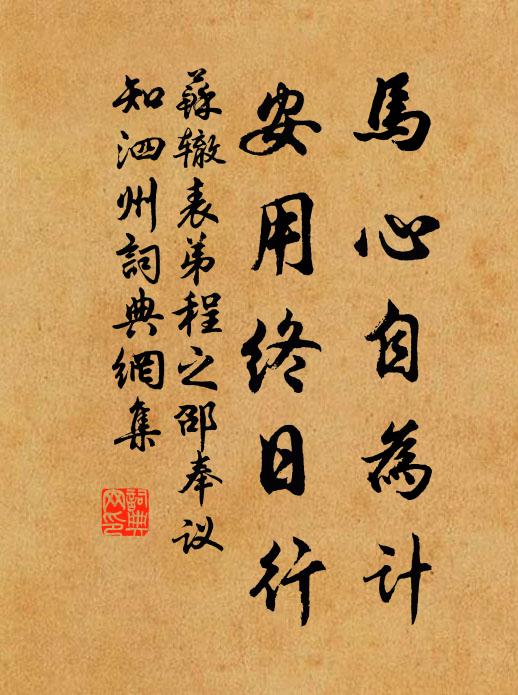 馬心自為计
安用终日行
蘇辙表弟程之邵奉议
知泗州詞典網集
詞典
网印